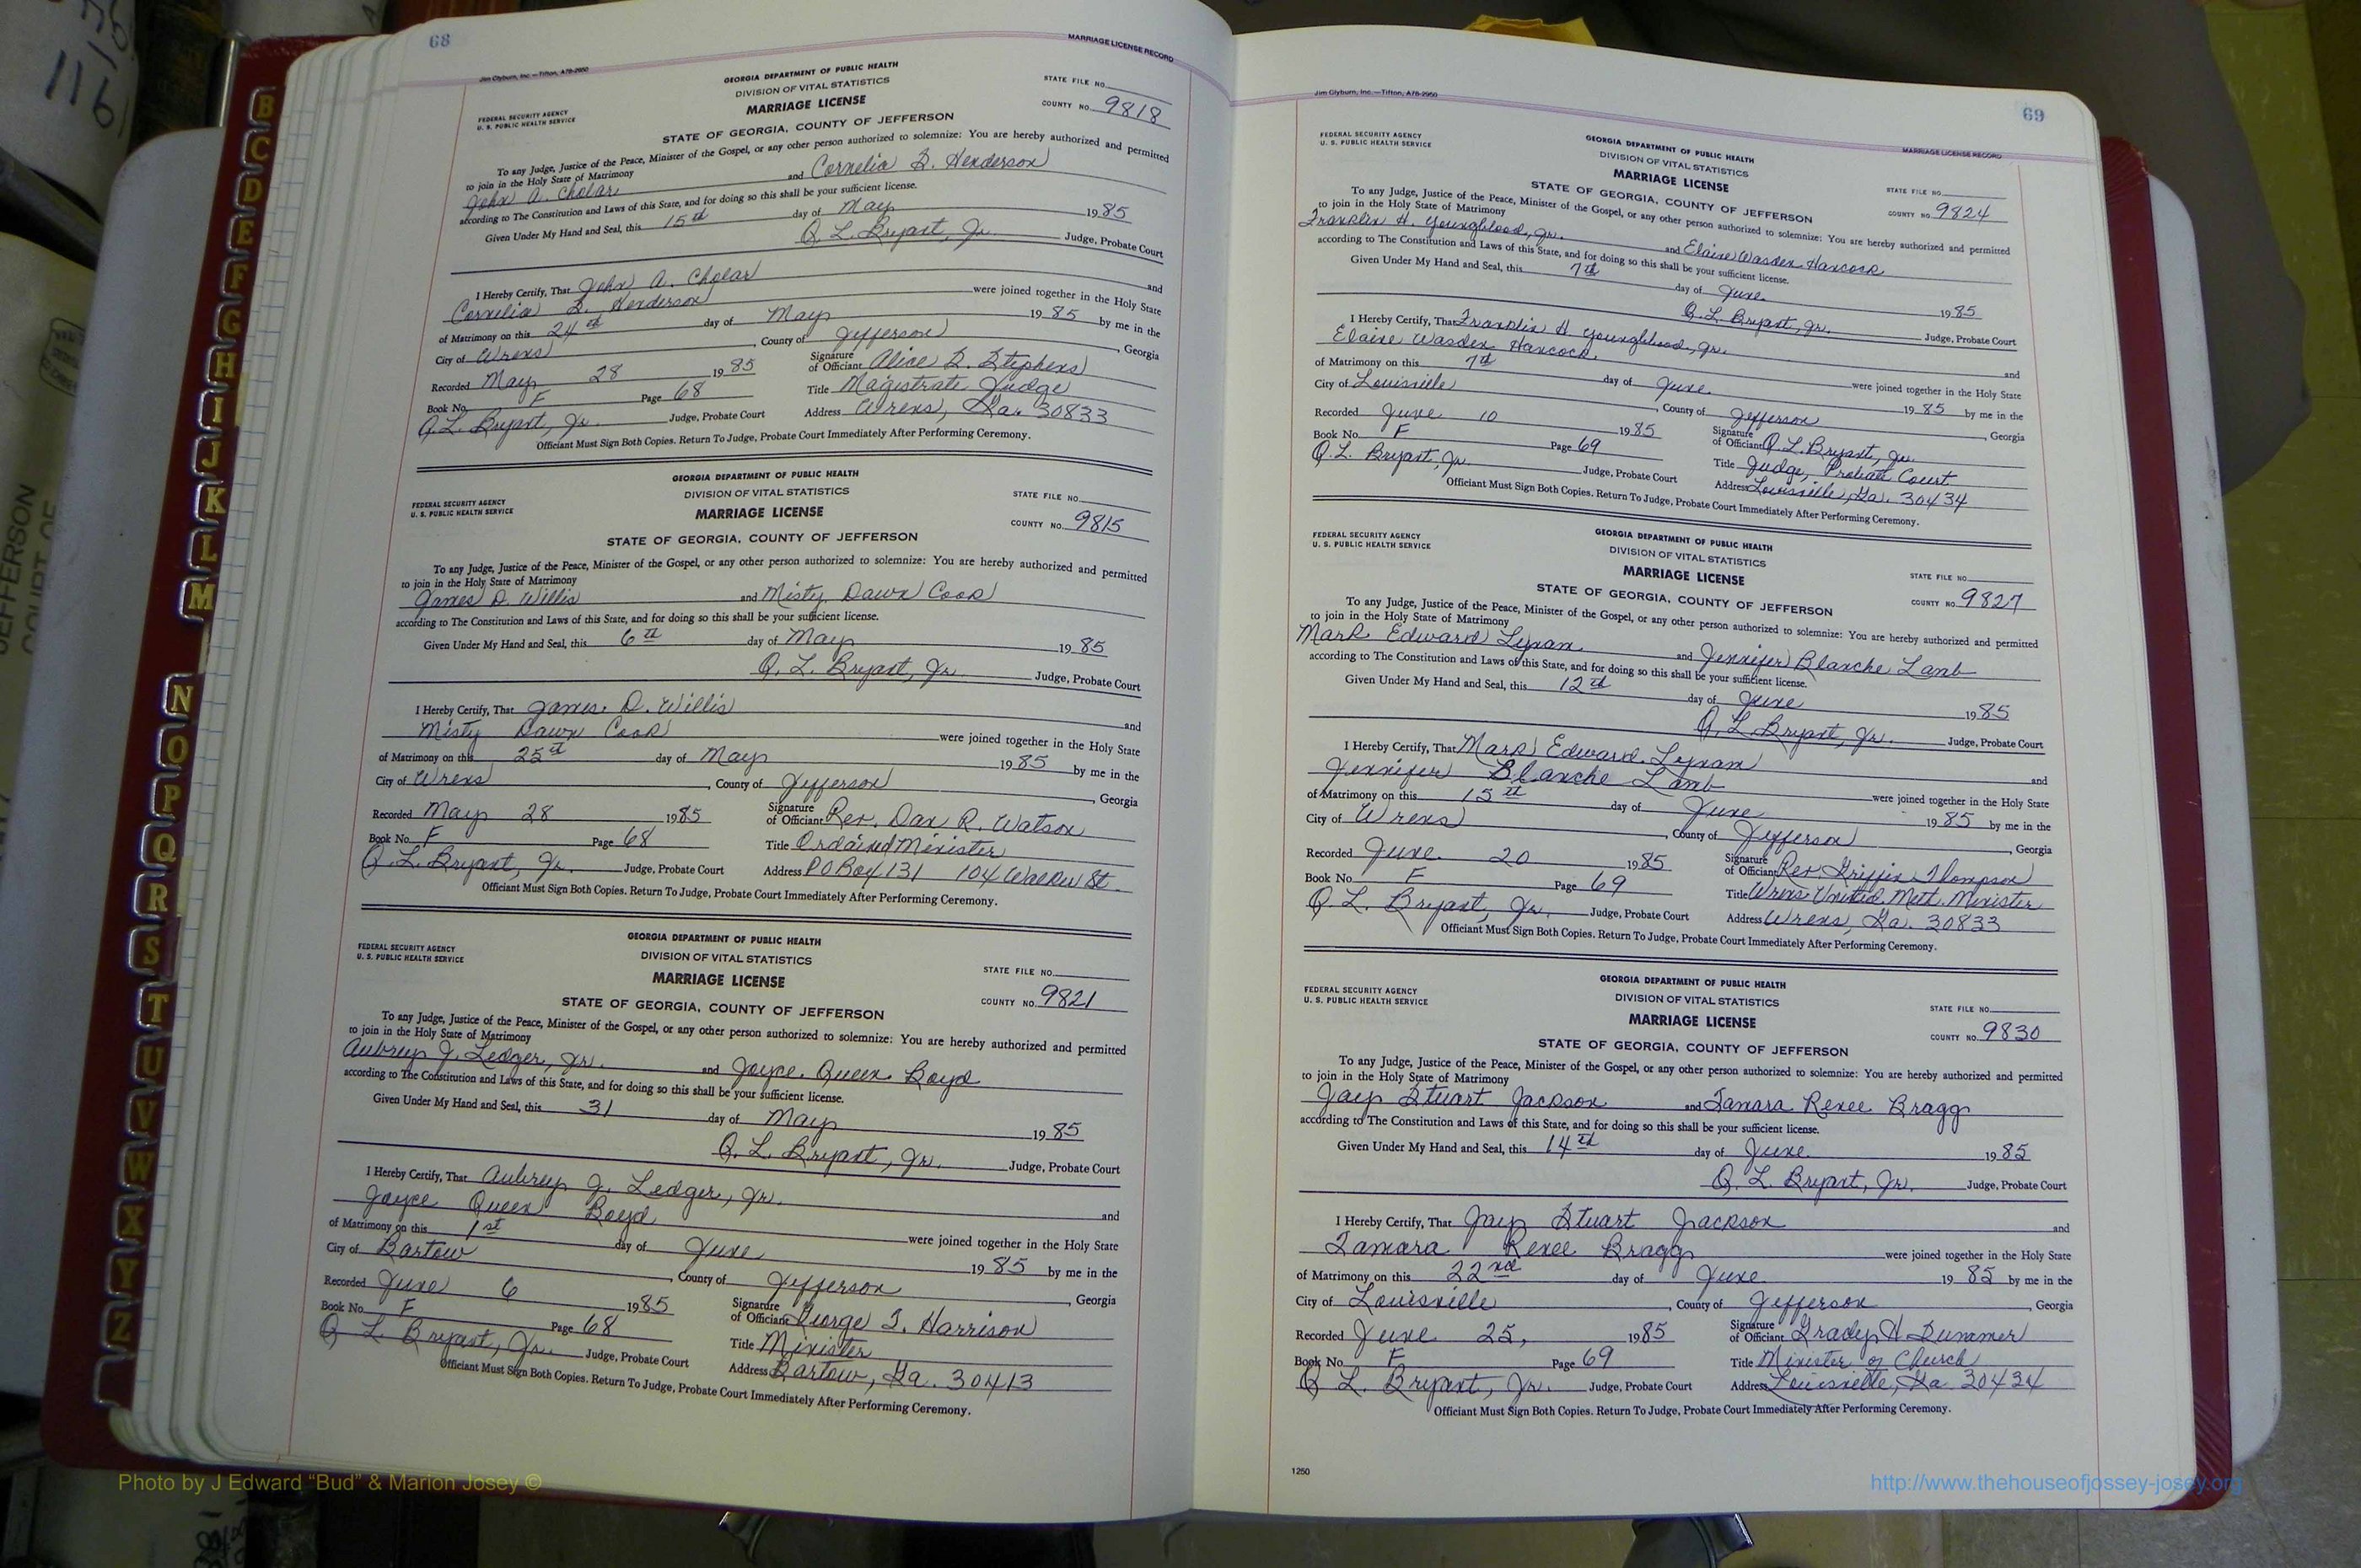 68
MARRIAGE LICENSE RECORD
Jim Clyburn, Inc.—Tifton, A78-2950
GEORGIA DEPARTMENT OF PUBLIC HEALTH
DIVISION OF VITAL STATISTICS
MARRIAGE LICENSE
STATE FILE NO.
FEDERAL SECURITY AGENCY
U. S. PUBLIC HEALTH SERVICE
COUNTY NO. 9818
STATE OF GEORGIA, COUNTY OF JEFFERSON
To any Judge, Justice of the Peace, Minister of the Gospel, or any other person authorized to solemnize: You are hereby authorized and permitted
to join in the Holy State of Matrimony
John A. Cholar and Cornelia D. Henderson
according to The Constitution and Laws of this State, and for doing so this shall be your sufficient license.
Given Under My Hand and Seal, this 15th day of May 1985
Q. L. Bryant, Jr. Judge, Probate Court
I Hereby Certify, That John A. Cholar and
Cornelia D. Henderson were joined together in the Holy State
of Matrimony on this 24th day of May 1985 by me in the
City of Wrens, County of Jefferson, Georgia
Recorded May 28 1985 Signature of Officiant Alice D. Stephens
Book No. F Page 68 Title Magistrate Judge
Q. L. Bryant, Jr. Judge, Probate Court Address Wrens, Ga. 30833
Officiant Must Sign Both Copies. Return To Judge, Probate Court Immediately After Performing Ceremony.
GEORGIA DEPARTMENT OF PUBLIC HEALTH
DIVISION OF VITAL STATISTICS
MARRIAGE LICENSE
STATE FILE NO.
FEDERAL SECURITY AGENCY
U. S. PUBLIC HEALTH SERVICE
COUNTY NO. 9815
STATE OF GEORGIA, COUNTY OF JEFFERSON
To any Judge, Justice of the Peace, Minister of the Gospel, or any other person authorized to solemnize: You are hereby authorized and permitted
to join in the Holy State of Matrimony
James D. Willis and Misty Dawn Cook
according to The Constitution and Laws of this State, and for doing so this shall be your sufficient license.
Given Under My Hand and Seal, this 6th day of May 1985
Q. L. Bryant, Jr. Judge, Probate Court
I Hereby Certify, That James D. Willis and
Misty Dawn Cook were joined together in the Holy State
of Matrimony on this 25th day of May 1985 by me in the
City of Wrens, County of Jefferson, Georgia
Recorded May 28 1985 Signature of Officiant Rev. Dan R. Watson
Book No. F Page 68 Title Ordained Minister
Q. L. Bryant, Jr. Judge, Probate Court Address P O Box 131 104 Walker St.
Officiant Must Sign Both Copies. Return To Judge, Probate Court Immediately After Performing Ceremony.
GEORGIA DEPARTMENT OF PUBLIC HEALTH
DIVISION OF VITAL STATISTICS
MARRIAGE LICENSE
STATE FILE NO.
FEDERAL SECURITY AGENCY
U. S. PUBLIC HEALTH SERVICE
COUNTY NO. 9821
STATE OF GEORGIA, COUNTY OF JEFFERSON
To any Judge, Justice of the Peace, Minister of the Gospel, or any other person authorized to solemnize: You are hereby authorized and permitted
to join in the Holy State of Matrimony
Aubrey J. Ledger, Jr. and Joyce Queen Boyd
according to The Constitution and Laws of this State, and for doing so this shall be your sufficient license.
Given Under My Hand and Seal, this 31 day of May 1985
Q. L. Bryant, Jr. Judge, Probate Court
I Hereby Certify, That Aubrey J. Ledger, Jr. and
Joyce Queen Boyd were joined together in the Holy State
of Matrimony on this 1st day of June 1985 by me in the
City of Bartow, County of Jefferson, Georgia
Recorded June 6 1985 Signature of Officiant George T. Harrison
Book No. F Page 68 Title Minister
Q. L. Bryant, Jr. Judge, Probate Court Address Bartow, Ga. 30413
Officiant Must Sign Both Copies. Return To Judge, Probate Court Immediately After Performing Ceremony.
69
Jim Clyburn, Inc.—Tifton, A78-2950
MARRIAGE LICENSE RECORD
FEDERAL SECURITY AGENCY
U. S. PUBLIC HEALTH SERVICE
GEORGIA DEPARTMENT OF PUBLIC HEALTH
DIVISION OF VITAL STATISTICS
MARRIAGE LICENSE
STATE FILE NO.
STATE OF GEORGIA, COUNTY OF JEFFERSON
COUNTY NO. 9824
To any Judge, Justice of the Peace, Minister of the Gospel, or any other person authorized to solemnize: You are hereby authorized and permitted
to join in the Holy State of Matrimony
Franklin H. Youngblood, Jr. and Elaine Wasden Hancock
according to The Constitution and Laws of this State, and for doing so this shall be your sufficient license.
Given Under My Hand and Seal, this 7th day of June 1985
Q. L. Bryant, Jr. Judge, Probate Court
I Hereby Certify, That Franklin H Youngblood, Jr. and
Elaine Wasden Hancock were joined together in the Holy State
of Matrimony on this 7th day of June 1985 by me in the
City of Louisville, County of Jefferson, Georgia
Recorded June 10 1985 Signature of Officiant Q. L. Bryant, Jr.
Book No. F Page 69 Title Judge, Probate Court
Q. L. Bryant, Jr. Judge, Probate Court Address Louisville, Ga. 30434
Officiant Must Sign Both Copies. Return To Judge, Probate Court Immediately After Performing Ceremony.
FEDERAL SECURITY AGENCY
U. S. PUBLIC HEALTH SERVICE
GEORGIA DEPARTMENT OF PUBLIC HEALTH
DIVISION OF VITAL STATISTICS
MARRIAGE LICENSE
STATE FILE NO.
STATE OF GEORGIA, COUNTY OF JEFFERSON
COUNTY NO. 9827
To any Judge, Justice of the Peace, Minister of the Gospel, or any other person authorized to solemnize: You are hereby authorized and permitted
to join in the Holy State of Matrimony
Mark Edward Lynan and Jennifer Blanche Lamb
according to The Constitution and Laws of this State, and for doing so this shall be your sufficient license.
Given Under My Hand and Seal, this 12th day of June 1985
Q. L. Bryant, Jr. Judge, Probate Court
I Hereby Certify, That Mark Edward Lynan and
Jennifer Blanche Lamb were joined together in the Holy State
of Matrimony on this 15th day of June 1985 by me in the
City of Wrens, County of Jefferson, Georgia
Recorded June 20 1985 Signature of Officiant Rev Griffin Thompson
Book No. F Page 69 Title Wrens United Meth. Minister
Q. L. Bryant, Jr. Judge, Probate Court Address Wrens, Ga. 30833
Officiant Must Sign Both Copies. Return To Judge, Probate Court Immediately After Performing Ceremony.
FEDERAL SECURITY AGENCY
U. S. PUBLIC HEALTH SERVICE
GEORGIA DEPARTMENT OF PUBLIC HEALTH
DIVISION OF VITAL STATISTICS
MARRIAGE LICENSE
STATE FILE NO.
STATE OF GEORGIA, COUNTY OF JEFFERSON
COUNTY NO. 9830
To any Judge, Justice of the Peace, Minister of the Gospel, or any other person authorized to solemnize: You are hereby authorized and permitted
to join in the Holy State of Matrimony
Jay Stuart Jackson and Tamara Renee Bragg
according to The Constitution and Laws of this State, and for doing so this shall be your sufficient license.
Given Under My Hand and Seal, this 14th day of June 1985
Q. L. Bryant, Jr. Judge, Probate Court
I Hereby Certify, That Jay Stuart Jackson and
Tamara Renee Bragg were joined together in the Holy State
of Matrimony on this 22nd day of June 1985 by me in the
City of Louisville, County of Jefferson, Georgia
Recorded June 25, 1985 Signature of Officiant Grady H
Book No. F Page 69 Title Minister of Church
Q. L. Bryant, Jr. Judge, Probate Court Address Louisville, Ga 30434
Officiant Must Sign Both Copies. Return To Judge, Probate Court Immediately After Performing Ceremony.
1250
B
C
D
E
F
G
H
I
J
K
L
M
N
O
P
Q
R
S
T
U
V
W
X
Y
Z
116
JEFFERSON
COURT OF
Photo by J Edward “Bud” & Marion Josey ©
http://www.thehouseofjossey-josey.org